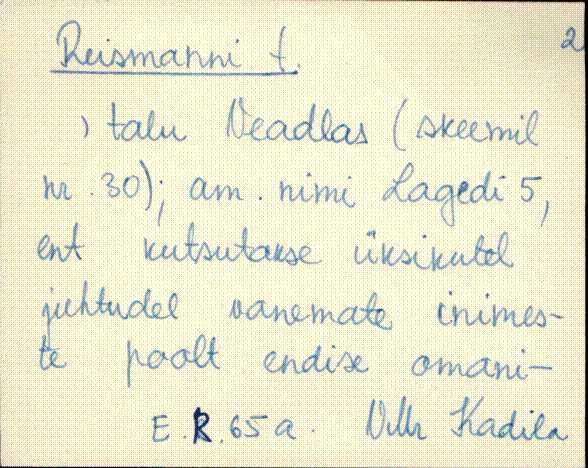 2
Reismanni t.
) talu Veadlas (skeemil
nr. 30); am. nimi Lagedi 5,
ent kutsutakse üksikutel
juhtudel vanemate inimes-
te poolt endise omani-
E.R. 65 a. Kadila